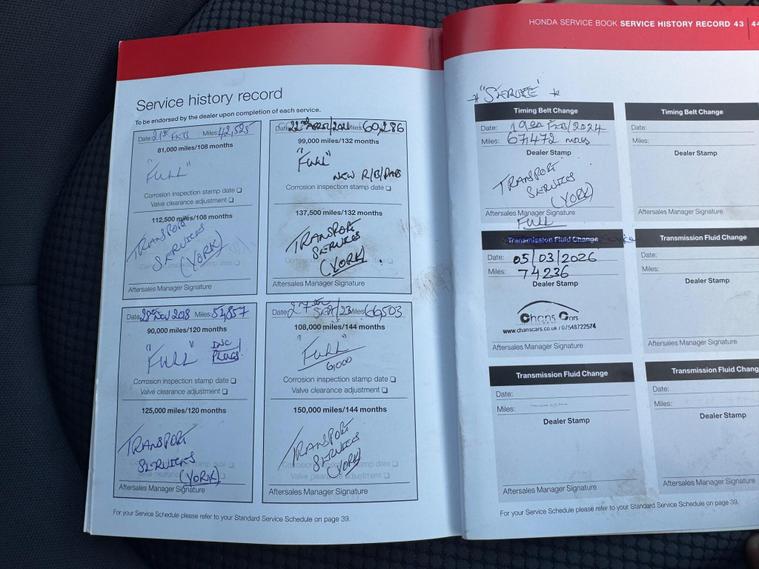 HONDA SERVICE BOOK SERVICE HISTORY RECORD 43 44
Service history record
To be endorsed by the dealer upon completion of each service.
Date: 21st Miles: 42,525
81,000 miles/108 months
"FULL"
Corrosion inspection stamp date
Valve clearance adjustment
112,500 miles/108 months
TRANSPORT
SERVICES
(YORK)
Aftersales Manager Signature
Date: 22nd Miles: 60,286
99,000 miles/132 months
"FULL"
NEW R/B/PADS
Corrosion inspection stamp date
137,500 miles/132 months
TRANSPORT
SERVICES
(YORK).
Aftersales Manager Signature
Date: 28th Nov 2018 Miles: 51,857
90,000 miles/120 months
"FULL" INC/
PLUGS
Corrosion inspection stamp date
Valve clearance adjustment
125,000 miles/120 months
TRANSPORT
SERVICES
(YORK)
Aftersales Manager Signature
Date: 27th SEPT/23 Miles: 66,503
108,000 miles/144 months
"FULL"
6,000
Corrosion inspection stamp date
Valve clearance adjustment
150,000 miles/144 months
TRANSPORT
SERVICES
(YORK)
Aftersales Manager Signature
For your Service Schedule please refer to your Standard Service Schedule on page 39.
"SERVICE"
Timing Belt Change
Date: 19th Feb/2024
Miles: 67,472 miles
Dealer Stamp
TRANSPORT
SERVICES
(YORK)
Aftersales Manager Signature
FULL
Timing Belt Change
Date:
Miles:
Dealer Stamp
Aftersales Manager Signature
Transmission Fluid Change
Date: 05/03/2026
Miles: 74236
Dealer Stamp
Chans Cars
www.chanscars.co.uk / 07548722574
Aftersales Manager Signature
Transmission Fluid Change
Date:
Miles:
Dealer Stamp
Aftersales Manager Signature
Transmission Fluid Change
Date:
Miles:
Dealer Stamp
Aftersales Manager Signature
Transmission Fluid Change
Date:
Miles:
Dealer Stamp
Aftersales Manager Signature
For your Service Schedule please refer to your Standard Service Schedule on page 39.